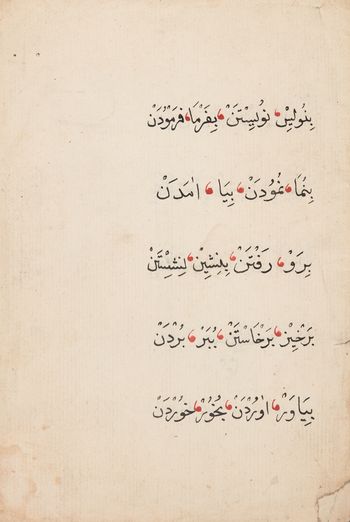 بِنُوِیسْ نُوِیسْتَنْ بِفَرْمَا فَرَمُودَنْ
بِنُمَا نُمُودَنْ بِیَا اٰمَدَنْ
بِرَوْ رَفْتَنْ بِنِشِینْ نِشَسْتَنْ
بَرْخِیزْ بَرْخَاسْتَنْ بُبَرْ بُرْدَنْ
بِیَاوَرْ اٰوُرْدَنْ بُخُورْ خُورْدَنْ